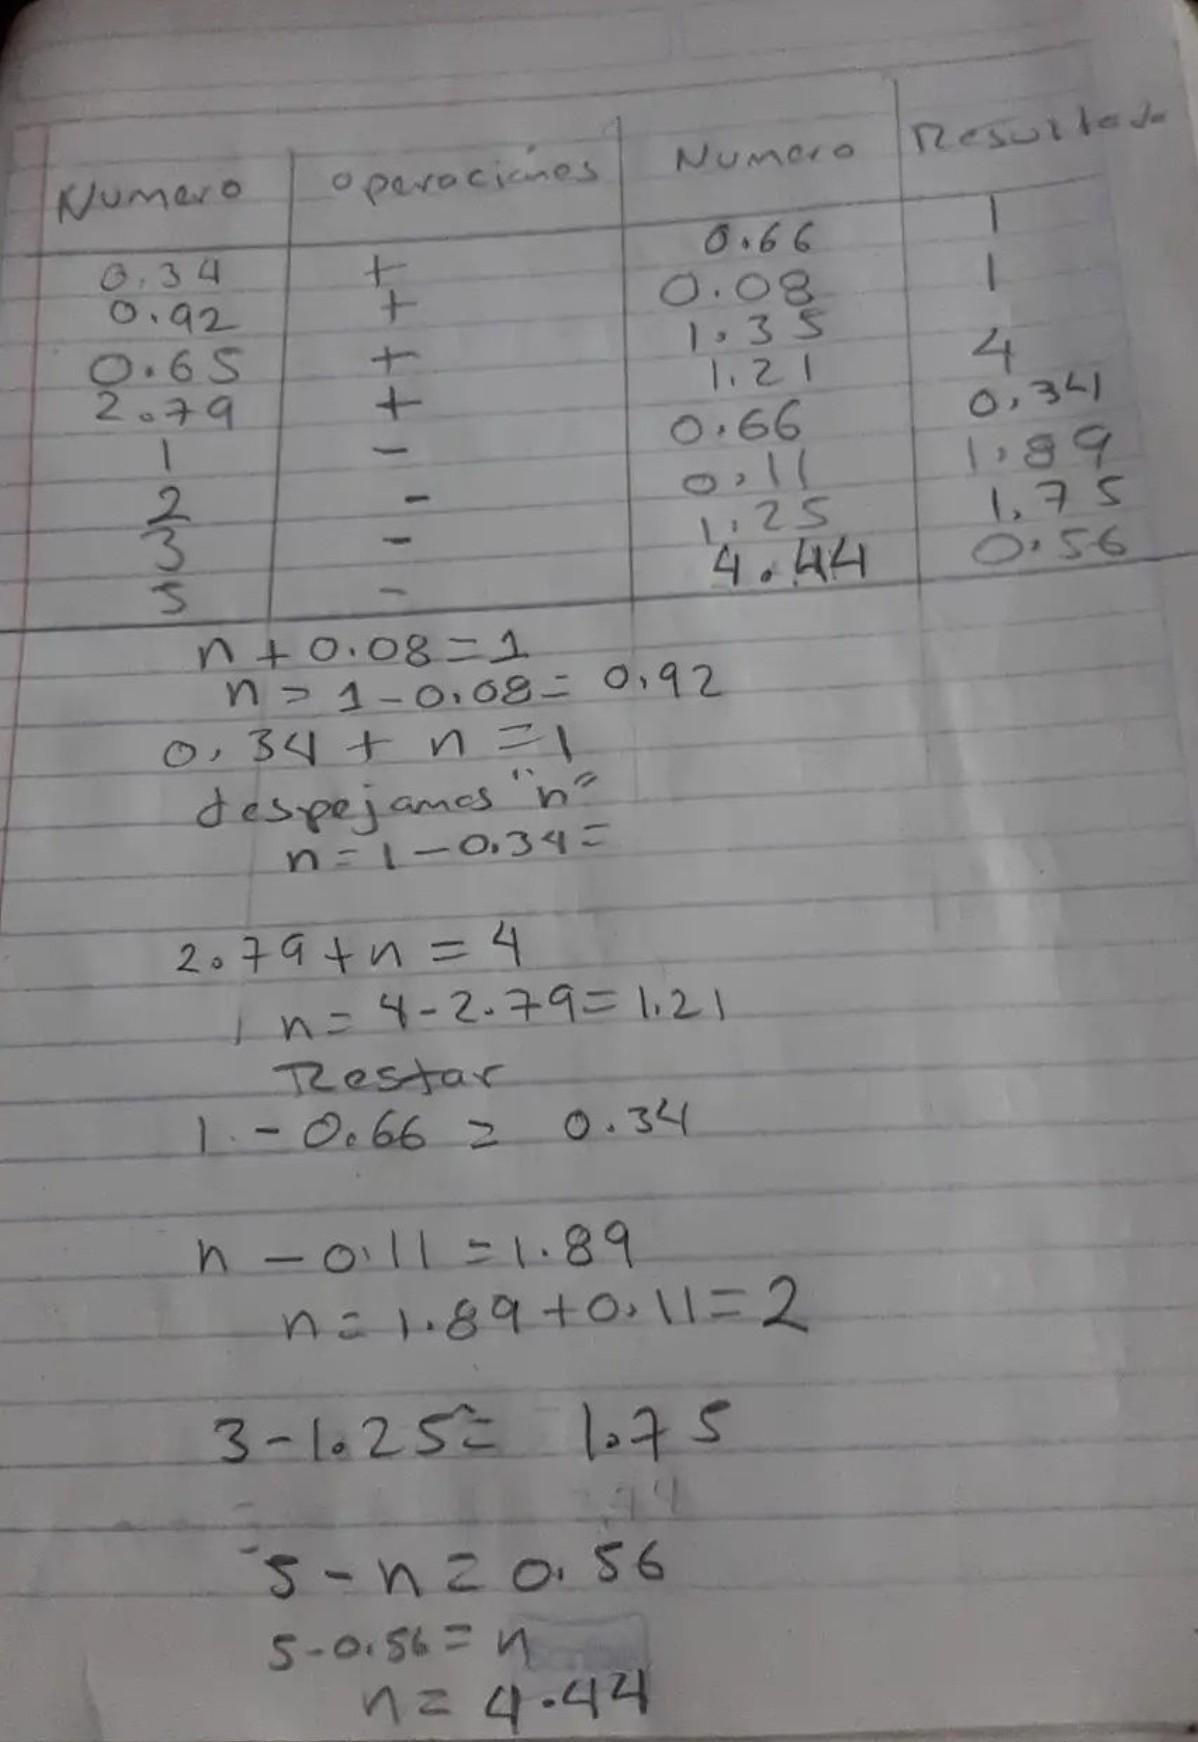 Numero operaciones Numero Resultado
0.34 + 0.66 1
0.92 + 0.08 1
0.65 + 1.35
2.79 + 1.21 4
1 - 0.66 0.34
2 - 0.11 1.89
3 - 1.25 1.75
5 - 4.44 0.56
n + 0.08 = 1
n = 1 - 0.08 = 0.92
0.34 + n = 1
despejamos "n"
n = 1 - 0.34 =
2.79 + n = 4
n = 4 - 2.79 = 1.21
Restar
1 - 0.66 = 0.34
n - 0.11 = 1.89
n = 1.89 + 0.11 = 2
3 - 1.25 = 1.75
5 - n = 0.56
5 - 0.56 = n
n = 4.44